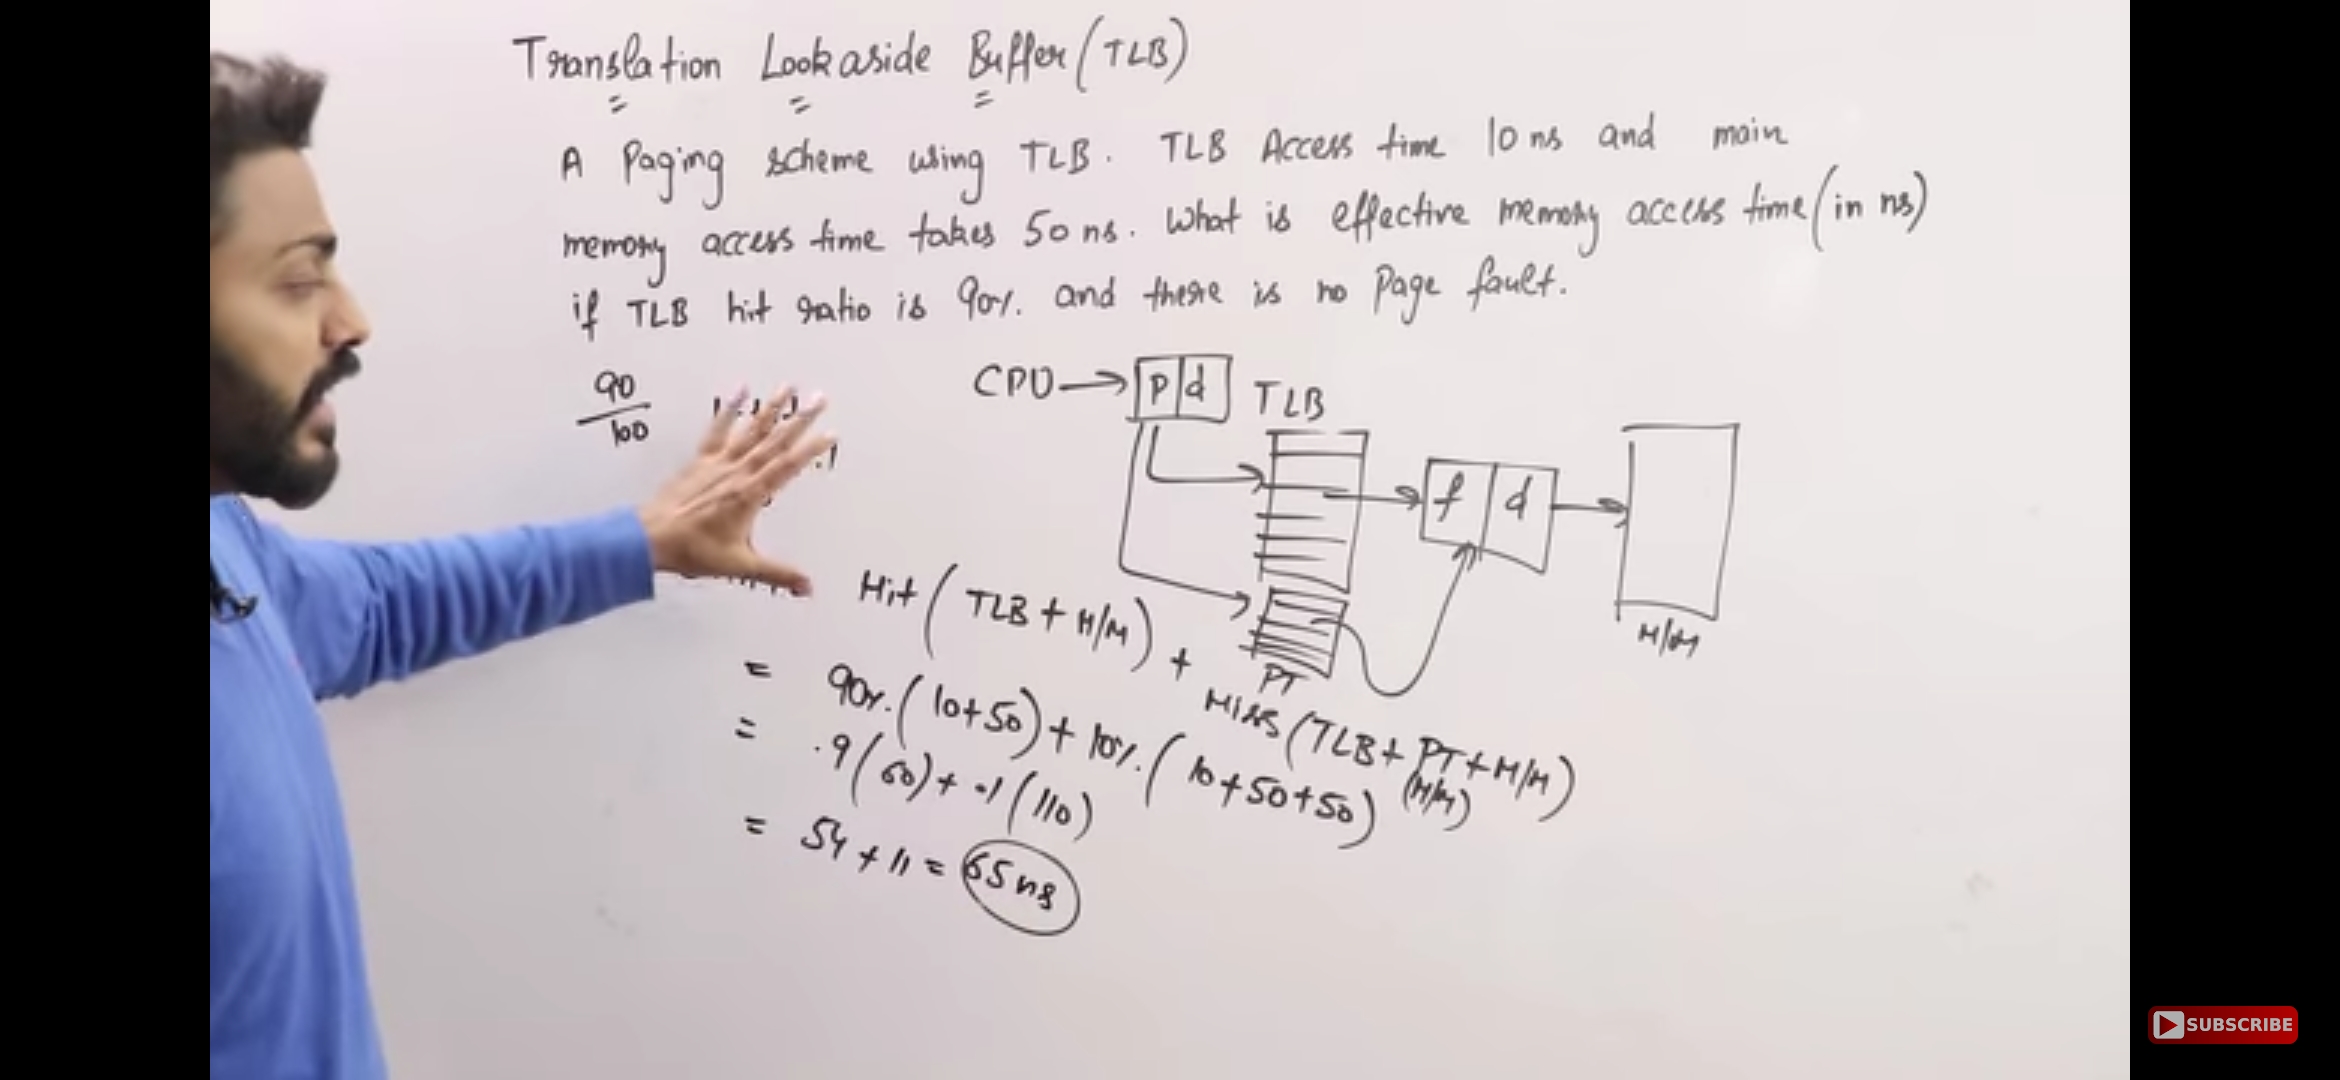 Translation Lookaside Buffer (TLB)
A Paging scheme using TLB. TLB Access time 10 ns and main
memory access time takes 50 ns. What is effective memory access time (in ns)
if TLB hit ratio is 90%. and there is no Page fault.
90
100
.1
CPU → p d
TLB
f d
M/M
PT
Hit (TLB + M/M) + Miss (TLB + PT + M/M)
(M/M)
= 90%. (10+50) + 10%. (10+50+50)
= .9 (60) + .1 (110)
= 54 + 11 = 65 ns
SUBSCRIBE